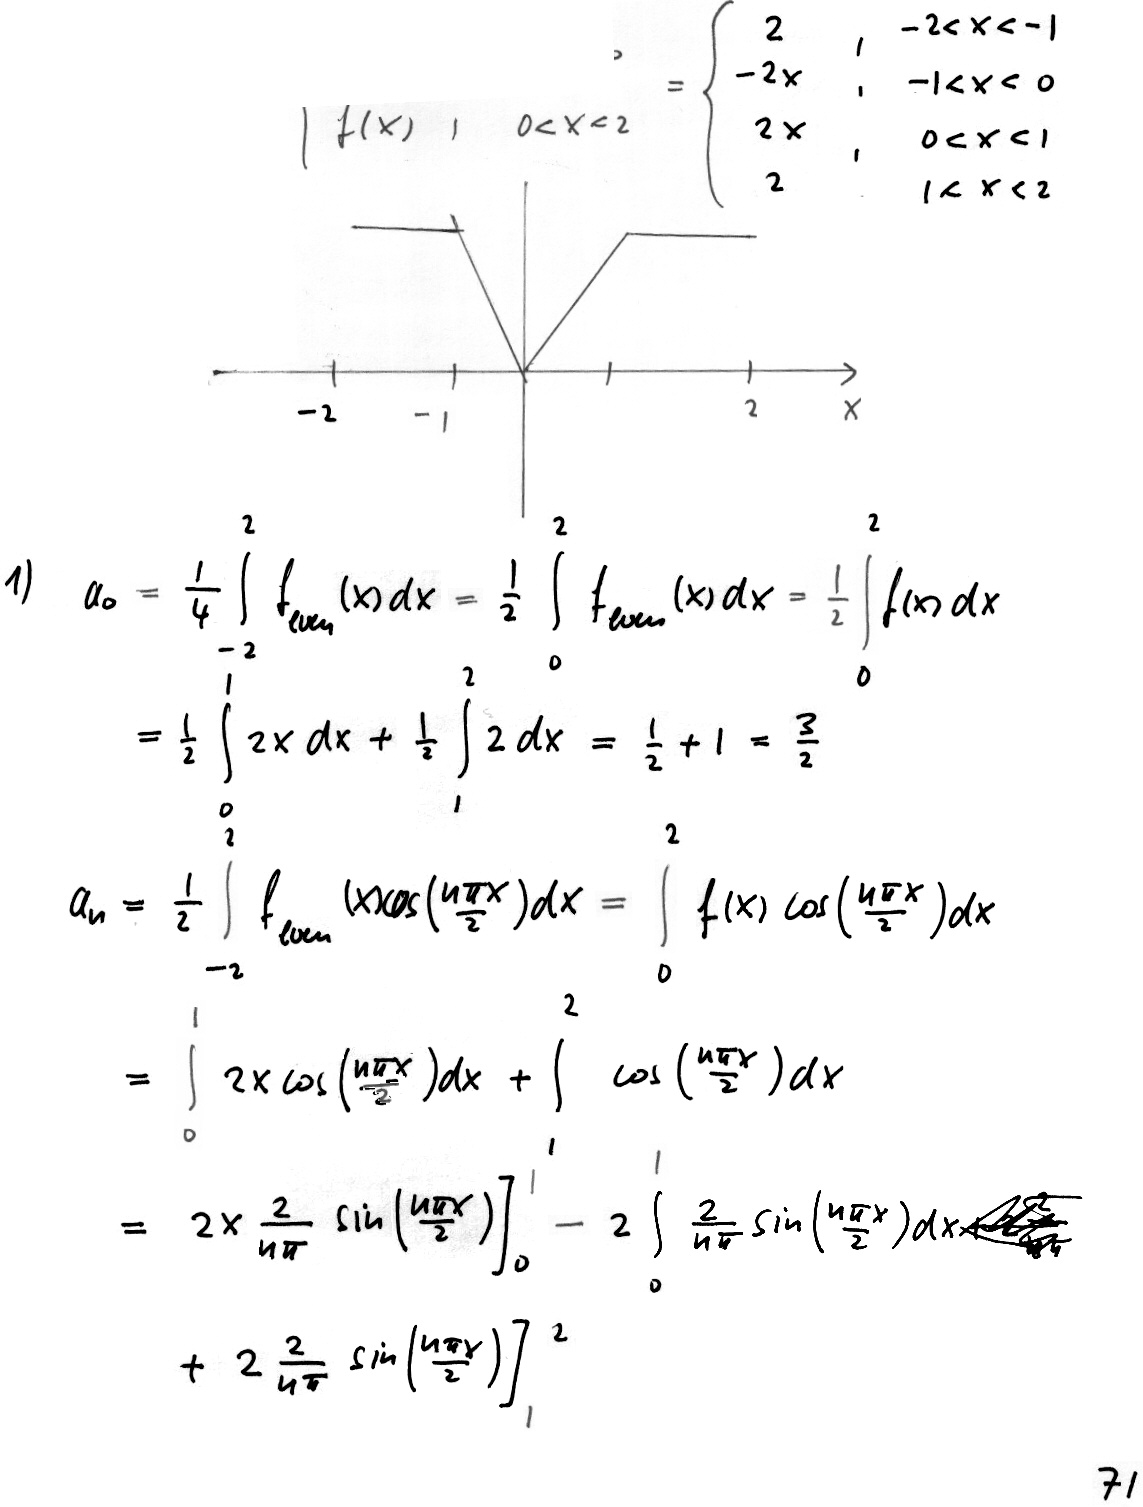 = { 2 , -2<x<-1
-2x , -1<x<0
| f(x) , 0<x<2
2x , 0<x<1
2 1<x<2
-2 -1 2 x
1) a₀ = 1/4 ∫_{-2}^{2} f_even (x) dx = 1/2 ∫_0^2 f_even (x) dx = 1/2 ∫_0^2 f(x) dx
= 1/2 ∫_0^1 2x dx + 1/2 ∫_1^2 2 dx = 1/2 + 1 = 3/2
aₙ = 1/2 ∫_{-2}^{2} f_even (x) cos(nπx/2) dx = ∫_0^2 f(x) cos(nπx/2) dx
= ∫_0^1 2x cos(nπx/2) dx + ∫_1^2 cos(nπx/2) dx
= 2x 2/nπ sin(nπx/2)]_0^1 - 2 ∫_0^1 2/nπ sin(nπx/2) dx
+ 2 2/nπ sin(nπx/2)]_1^2
71